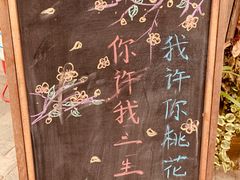 我许你桃花
你许我三生